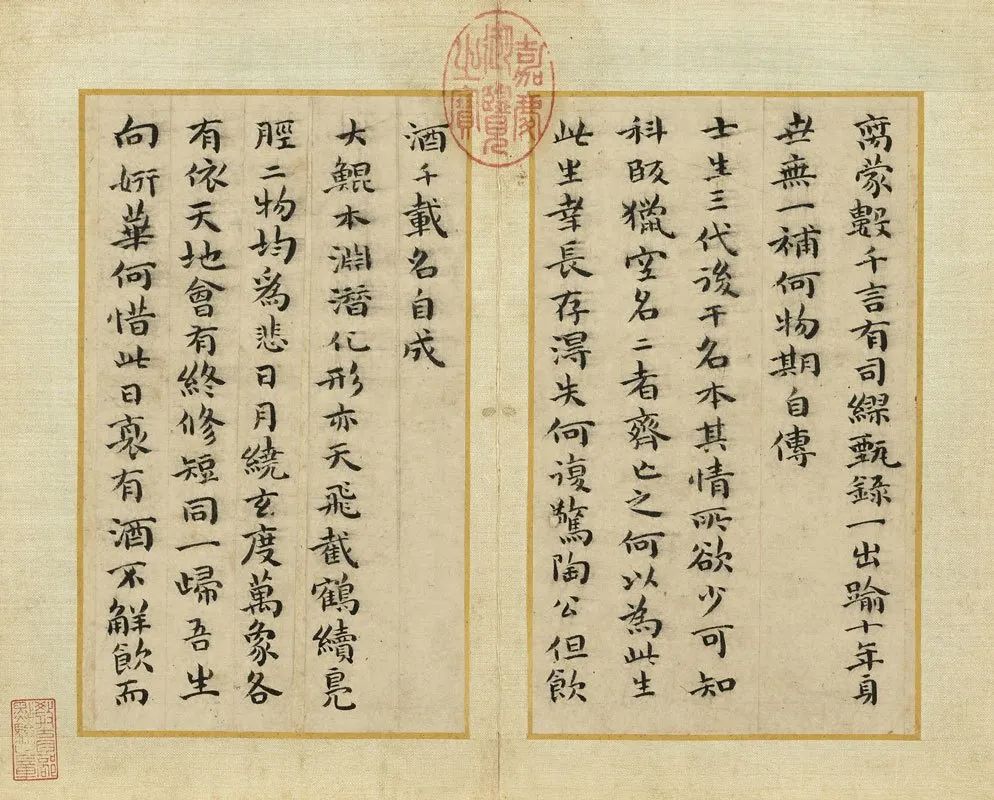 蒙數千言有司繆甄錄一出踰十年身
世無一補何物期自傳
士生三代後干名本其情所欲少可知
科段獵空名二者齊亡之何以為此生
此生幸長存得失何復驚陶公但飲
酒千載名自成
大鯤本淵潛化形亦天飛截鶴續鳧
脛二物均爲悲日月繞玄度萬象各
有依天地會有終修短同一歸吾生
向妍華何惜此日衰有酒不解飲而
嘉慶御覽之寶